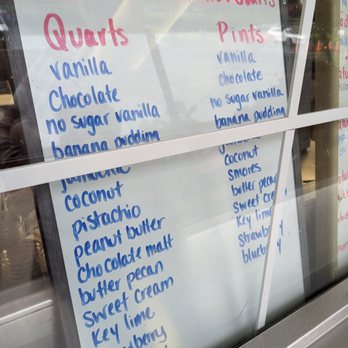 Quarts
vanilla
Chocolate
no sugar vanilla
banana pudding
coconut
pistachio
peanut butter
chocolate malt
butter pecan
sweet cream
key lime
Pints
vanilla
chocolate
no sugar vanilla
banana pudding
coconut
smores
butter pecan
sweet cream
Key lime
strawb y
blueb y